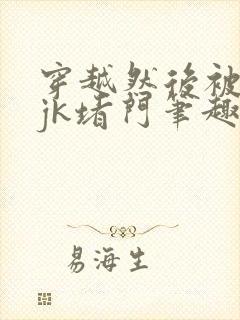 穿越然後被
jk堵門筆趣
易海生